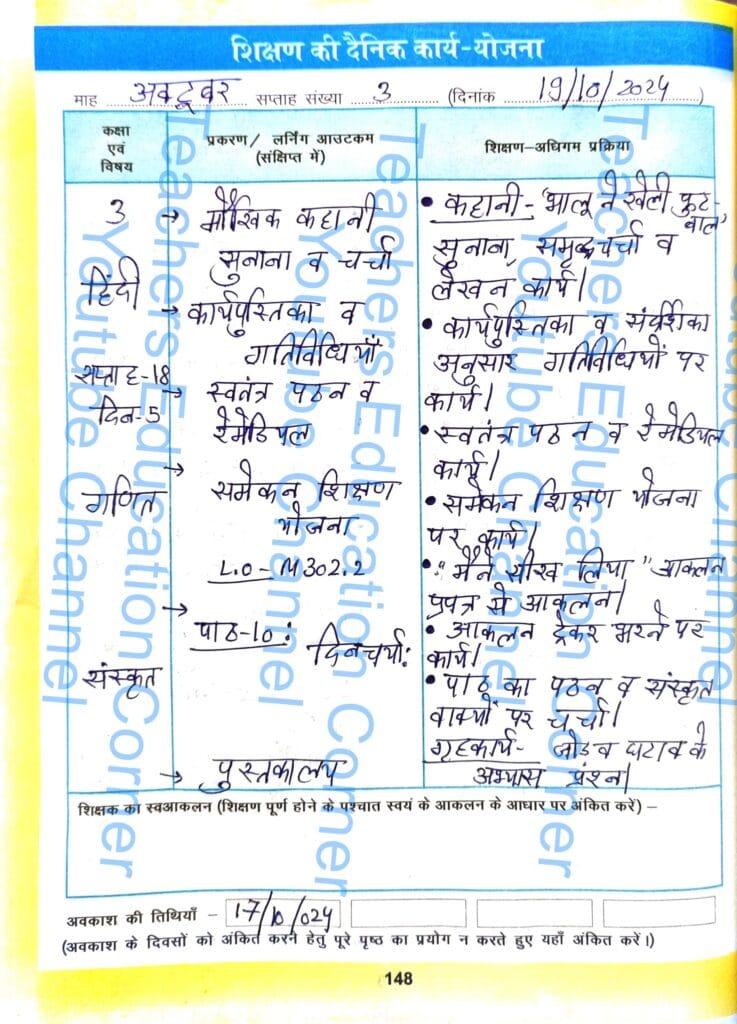 शिक्षण की दैनिक कार्य-योजना
माह अक्टूबर सप्ताह संख्या 3 (दिनांक 19/10/2024)
कक्षा
एवं
विषय
प्रकरण/ लर्निंग आउटकम
(संक्षिप्त में)
शिक्षण-अधिगम प्रक्रिया
3
हिंदी
सप्ताह-18
दिन-5
→ मौखिक कहानी
सुनाना व चर्चा
→ कार्यपुस्तिका व
गतिविधियाँ
→ स्वतंत्र पठन व
रेमेडियल
• कहानी- "भालू ने खेली फुट-
बाल"
सुनाना, समूह चर्चा व
लेखन कार्य।
• कार्यपुस्तिका व संदर्शिका
अनुसार गतिविधियों पर
कार्य।
• स्वतंत्र पठन व रेमेडियल
कार्य।
गणित
→ समेकन शिक्षण
योजना
L.O- M302.2
• समेकन शिक्षण योजना
पर कार्य।
• "मैंने सीख लिया" आकलन
प्रपत्र से आकलन।
• आकलन ट्रेकर भरने पर
कार्य।
संस्कृत
→ पाठ-10:
दिनचर्या:
→ पुस्तकालय
• पाठ का पठन व संस्कृत
वाक्यों पर चर्चा।
गृहकार्य- जोड़ व घटाव के
अभ्यास प्रश्न।
शिक्षक का स्वआकलन (शिक्षण पूर्ण होने के पश्चात स्वयं के आकलन के आधार पर अंकित करें) –
अवकाश की तिथियाँ – 17/10/024
(अवकाश के दिवसों को अंकित करने हेतु पूरे पृष्ठ का प्रयोग न करते हुए यहाँ अंकित करें।)
148
Teachers Education Corner
Youtube Channel
Teachers Education Corner
Youtube Channel
Teachers Education Corner
Youtube Channel